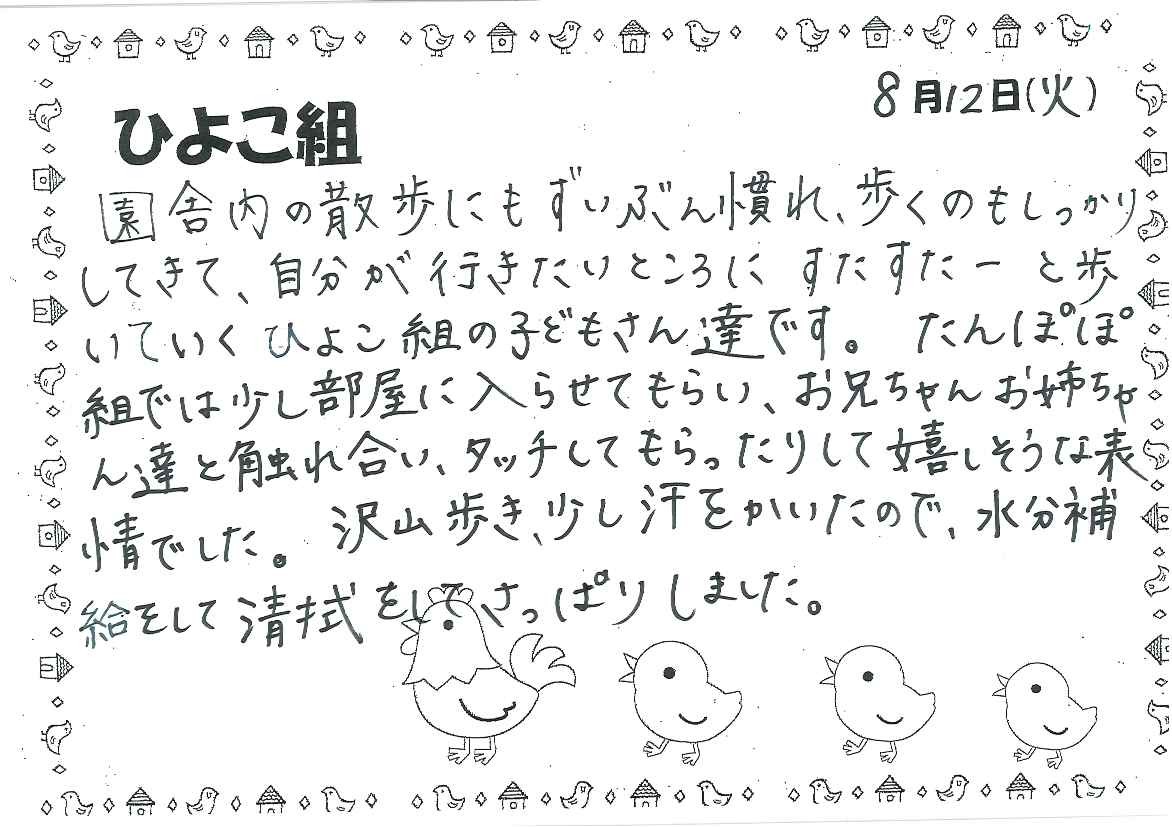 8月12日(火)
ひよこ組
園舎内の散歩にもずいぶん慣れ、歩くのもしっかり
してきて、自分が行きたいところに すたすたーと歩
いていくひよこ組の子どもさん達です。 たんぽぽ
組では少し部屋に入らせてもらい、お兄ちゃんお姉ちゃ
ん達と触れ合い、タッチしてもらったりして嬉しそうな表
情でした。 沢山歩き、少し汗をかいたので、水分補
給をして清拭をしてさっぱりしました。